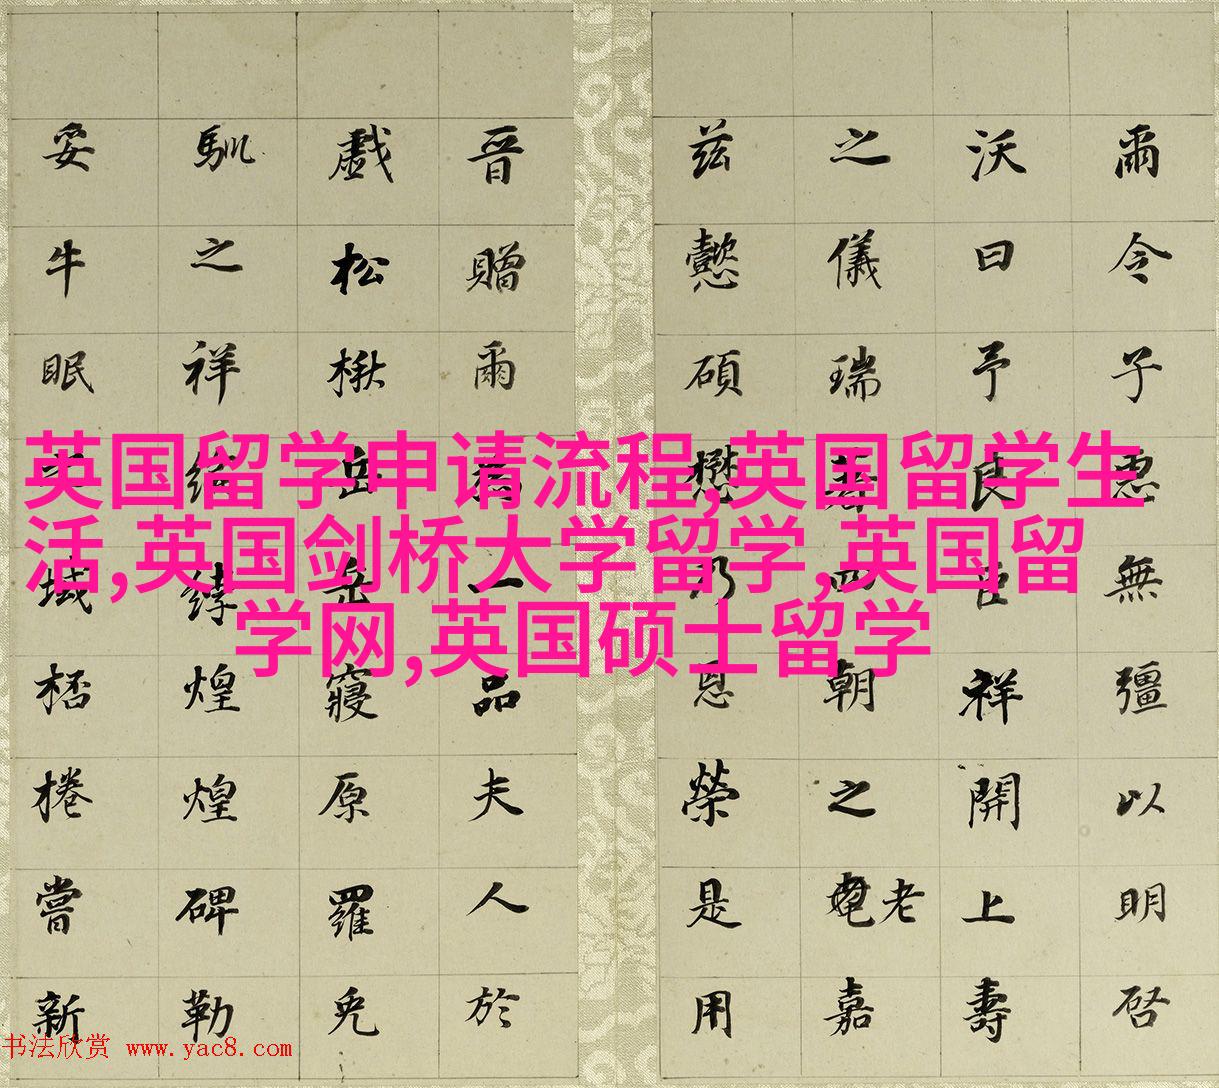 爾令子無彊以明啓
沃曰予良臣祥開上壽
之儀瑞四朝之老嘉
茲懿碩懋乃恩榮是用
晉贈爾為一品夫人於
戲松楸岳岳寢原羅
馴之祥煌煌碑勒
妥牛眠域桮棬嘗新
英国留学申请流程,英国留学生
活,英国剑桥大学留学,英国留
学网,英国硕士留学
书法欣赏 www.yac8.com